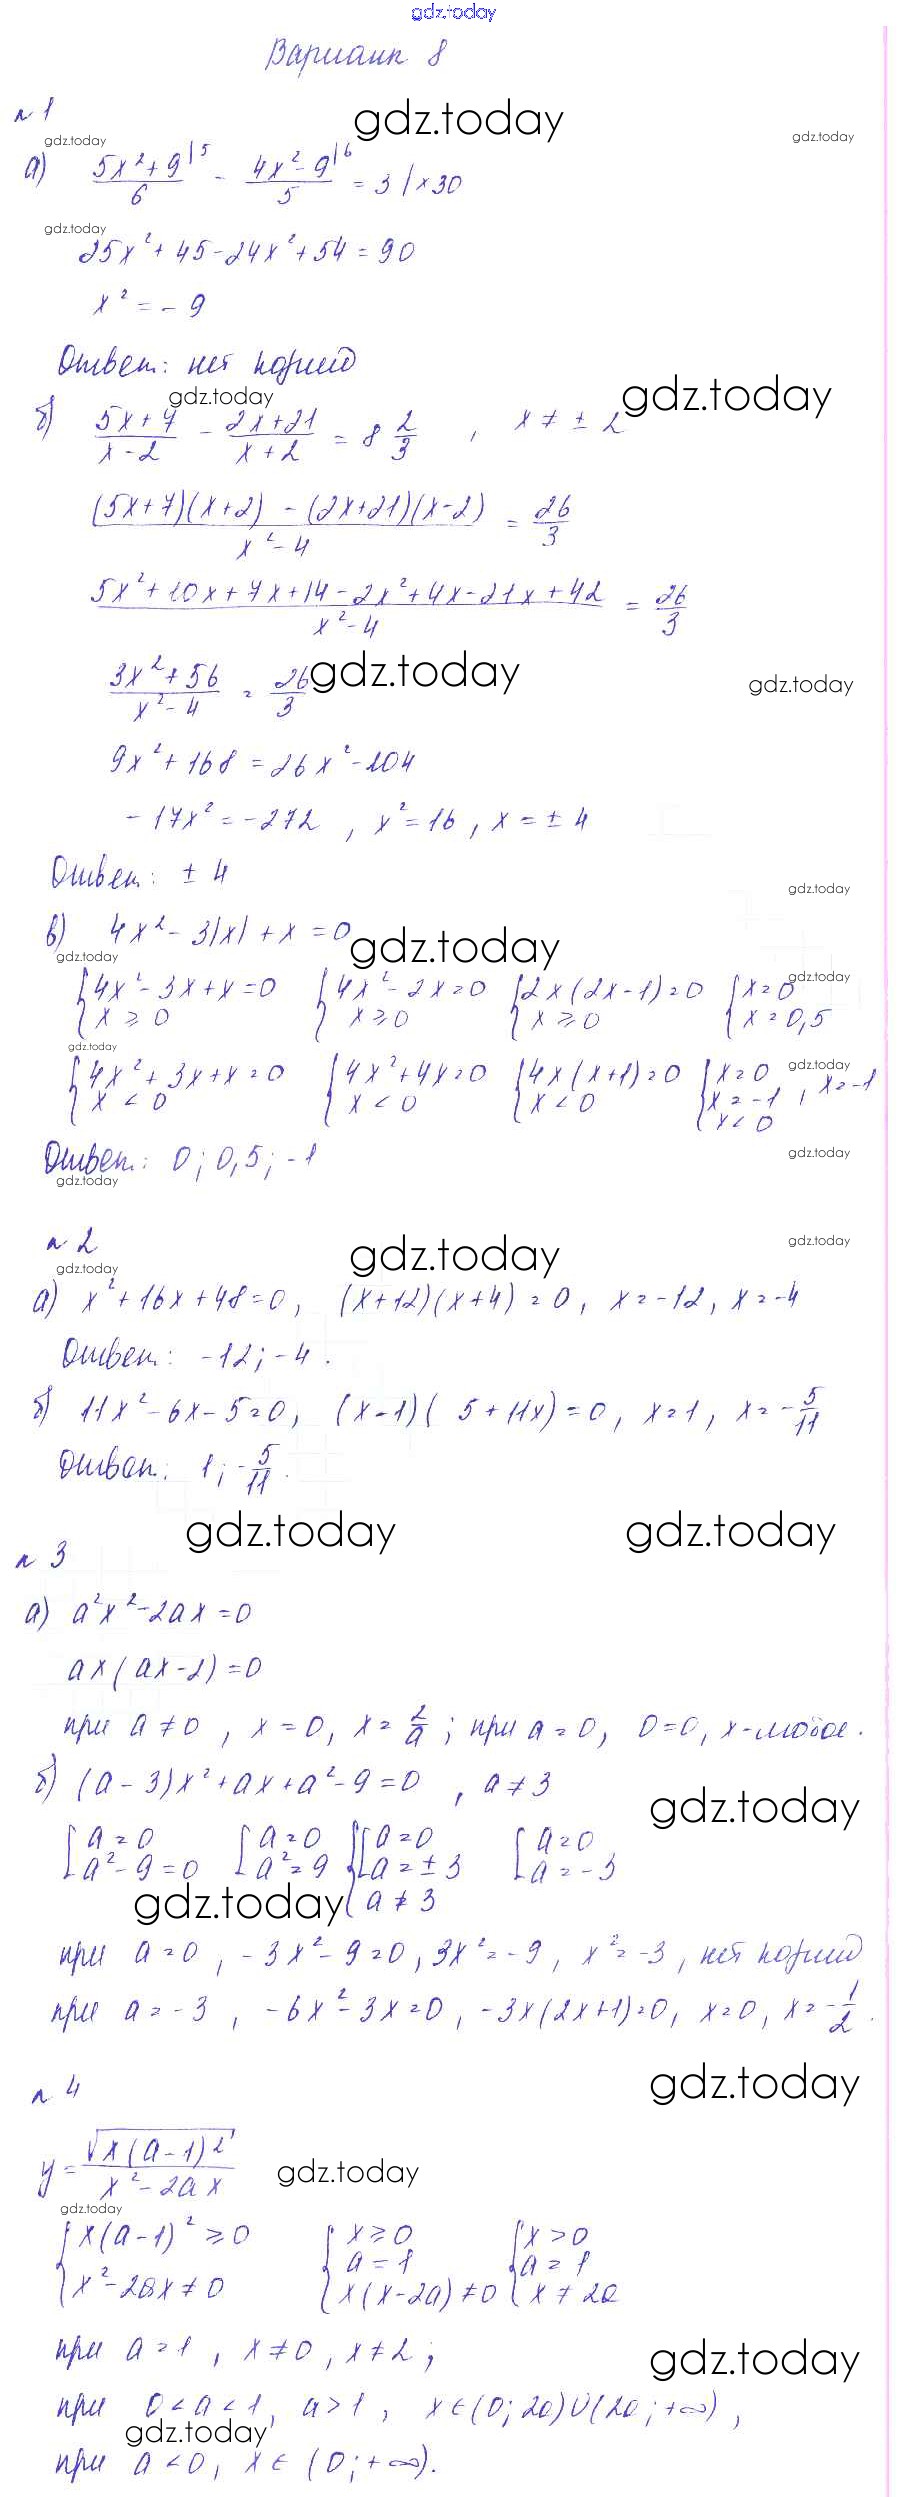 gdz.today
Вариант 8
№ 1
gdz.today
gdz.today
gdz.today
а) (5x² + 9)/6 |5 - (4x² - 9)/5 |6 = 3 | × 30
gdz.today
25x² + 45 - 24x² + 54 = 90
x² = - 9
Ответ: нет корней
gdz.today
gdz.today
б) (5x + 7)/(x - 2) - (2x + 21)/(x + 2) = 8 2/3 , x ≠ ± 2
((5x + 7)(x + 2) - (2x + 21)(x - 2))/(x² - 4) = 26/3
(5x² + 10x + 7x + 14 - 2x² + 4x - 21x + 42)/(x² - 4) = 26/3
gdz.today
gdz.today
(3x² + 56)/(x² - 4) = 26/3
9x² + 168 = 26x² - 104
- 17x² = -272 , x² = 16 , x = ± 4
Ответ: ± 4
gdz.today
в) 4x² - 3|x| + x = 0
gdz.today
gdz.today
gdz.today
{4x² - 3x + x = 0 {4x² - 2x = 0 {2x(2x - 1) = 0 {x = 0
x ⩾ 0 x ⩾ 0 x ⩾ 0 x = 0,5
gdz.today
gdz.today
{4x² + 3x + x = 0 {4x² + 4x = 0 {4x(x + 1) = 0 {x = 0
x < 0 x < 0 x < 0 x = -1 , x = -1
x < 0
Ответ: 0; 0,5; -1
gdz.today
gdz.today
№ 2
gdz.today
gdz.today
gdz.today
а) x² + 16x + 48 = 0, (x + 12)(x + 4) = 0, x = -12, x = -4
Ответ: -12; -4.
б) 11x² - 6x - 5 = 0, (x - 1)( 5 + 11x) = 0, x = 1, x = - 5/11
Ответ: 1; - 5/11.
gdz.today
gdz.today
№ 3
а) a²x² - 2ax = 0
ax(ax - 2) = 0
при a ≠ 0 , x = 0, x = 2/a ; при a = 0, 0 = 0, x - любое.
б) (a - 3)x² + ax + a² - 9 = 0 , a ≠ 3
gdz.today
[a = 0 [a = 0 {[a = 0 [a = 0
a² - 9 = 0 a² = 9 a = ± 3 a = - 3
a ≠ 3
gdz.today
при a = 0 , - 3x² - 9 = 0, 3x² = - 9 , x² = -3 , нет корней
при a = - 3 , -6x² - 3x = 0, -3x(2x + 1) = 0, x = 0, x = - 1/2.
gdz.today
№ 4
y = √(x(a - 1)²)/(x² - 2ax)
gdz.today
gdz.today
{x(a - 1)² ⩾ 0 {x ⩾ 0 {x > 0
x² - 2ax ≠ 0 a = 1 a = 1
x(x - 2a) ≠ 0 x ≠ 2a
при a = 1 , x ≠ 0 , x ≠ 2 ;
gdz.today
при 0 < a < 1, a > 1 , x ∈ (0; 2a) ∪ (2a; +∞) ,
gdz.today
при a < 0, x ∈ (0; +∞).